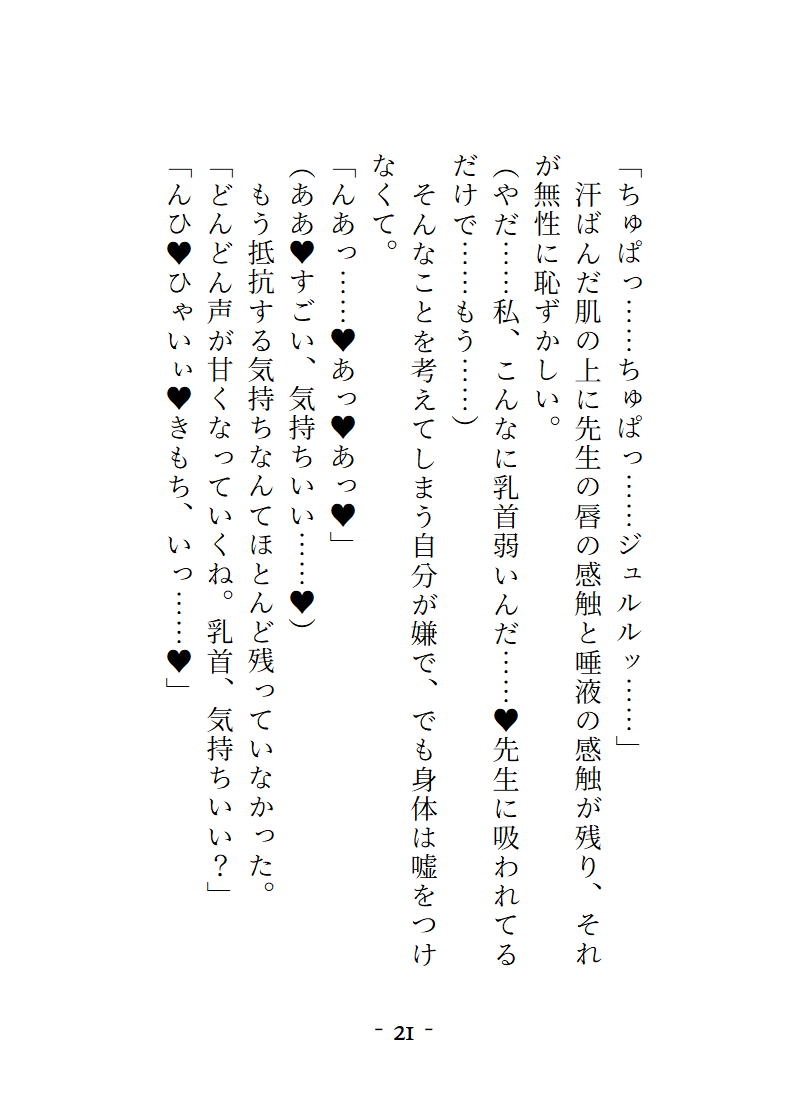 「ちゅぱっ……ちゅぱっ……ジュルルッ……」
　汗ばんだ肌の上に先生の唇の感触と唾液の感触が残り、それ
が無性に恥ずかしい。
（やだ……私、こんなに乳首弱いんだ……♥先生に吸われてる
だけで……もう……）
　そんなことを考えてしまう自分が嫌で、でも身体は嘘をつけ
なくて。
「んあっ……♥あっ♥あっ♥」
（ああ♥すごい、気持ちいい……♥）
　もう抵抗する気持ちなんてほとんど残っていなかった。
「どんどん声が甘くなっていくね。乳首、気持ちいい？」
「んひ♥ひゃいぃ♥きもち、いっ……♥」
- 21 -